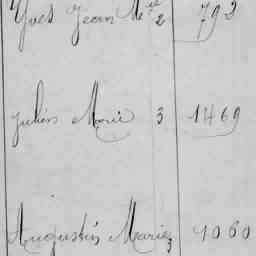 Yves Jean Mie 2 792
Julien Marie 3 1469
Augustin Marie 3 1060